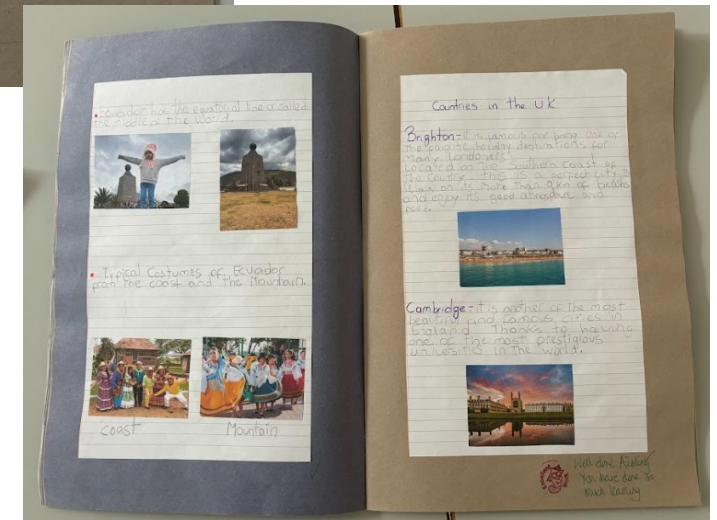 • Ecuador has the equatorial line or called
the middle of the world.
• Typical Costumes of Ecuador
from the coast and the Mountain.
coast Mountain
Countries in the UK
Brighton - it is famous for being one of
the favorite holiday destinations for
many Londoners.
Located on the southern coast of
the country this is a perfect city to
on its more than 9km of beaches
and enjoy its good atmosphere and
Cambridge - it is another of the most
beautiful and famous cities in
England. Thanks to having
one of the most prestigious
universities in the world.
Well done Aisling
You have done so
much